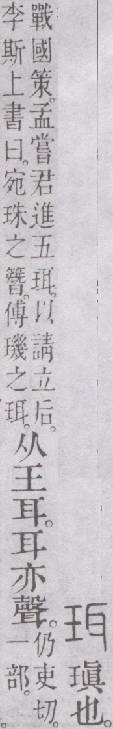 珥 瑱也。
戰國策。孟嘗君進五珥。以請立后。
李斯上書曰。宛珠之簪。傅璣之珥。
从王耳。耳亦聲。
仍吏切。
一部。